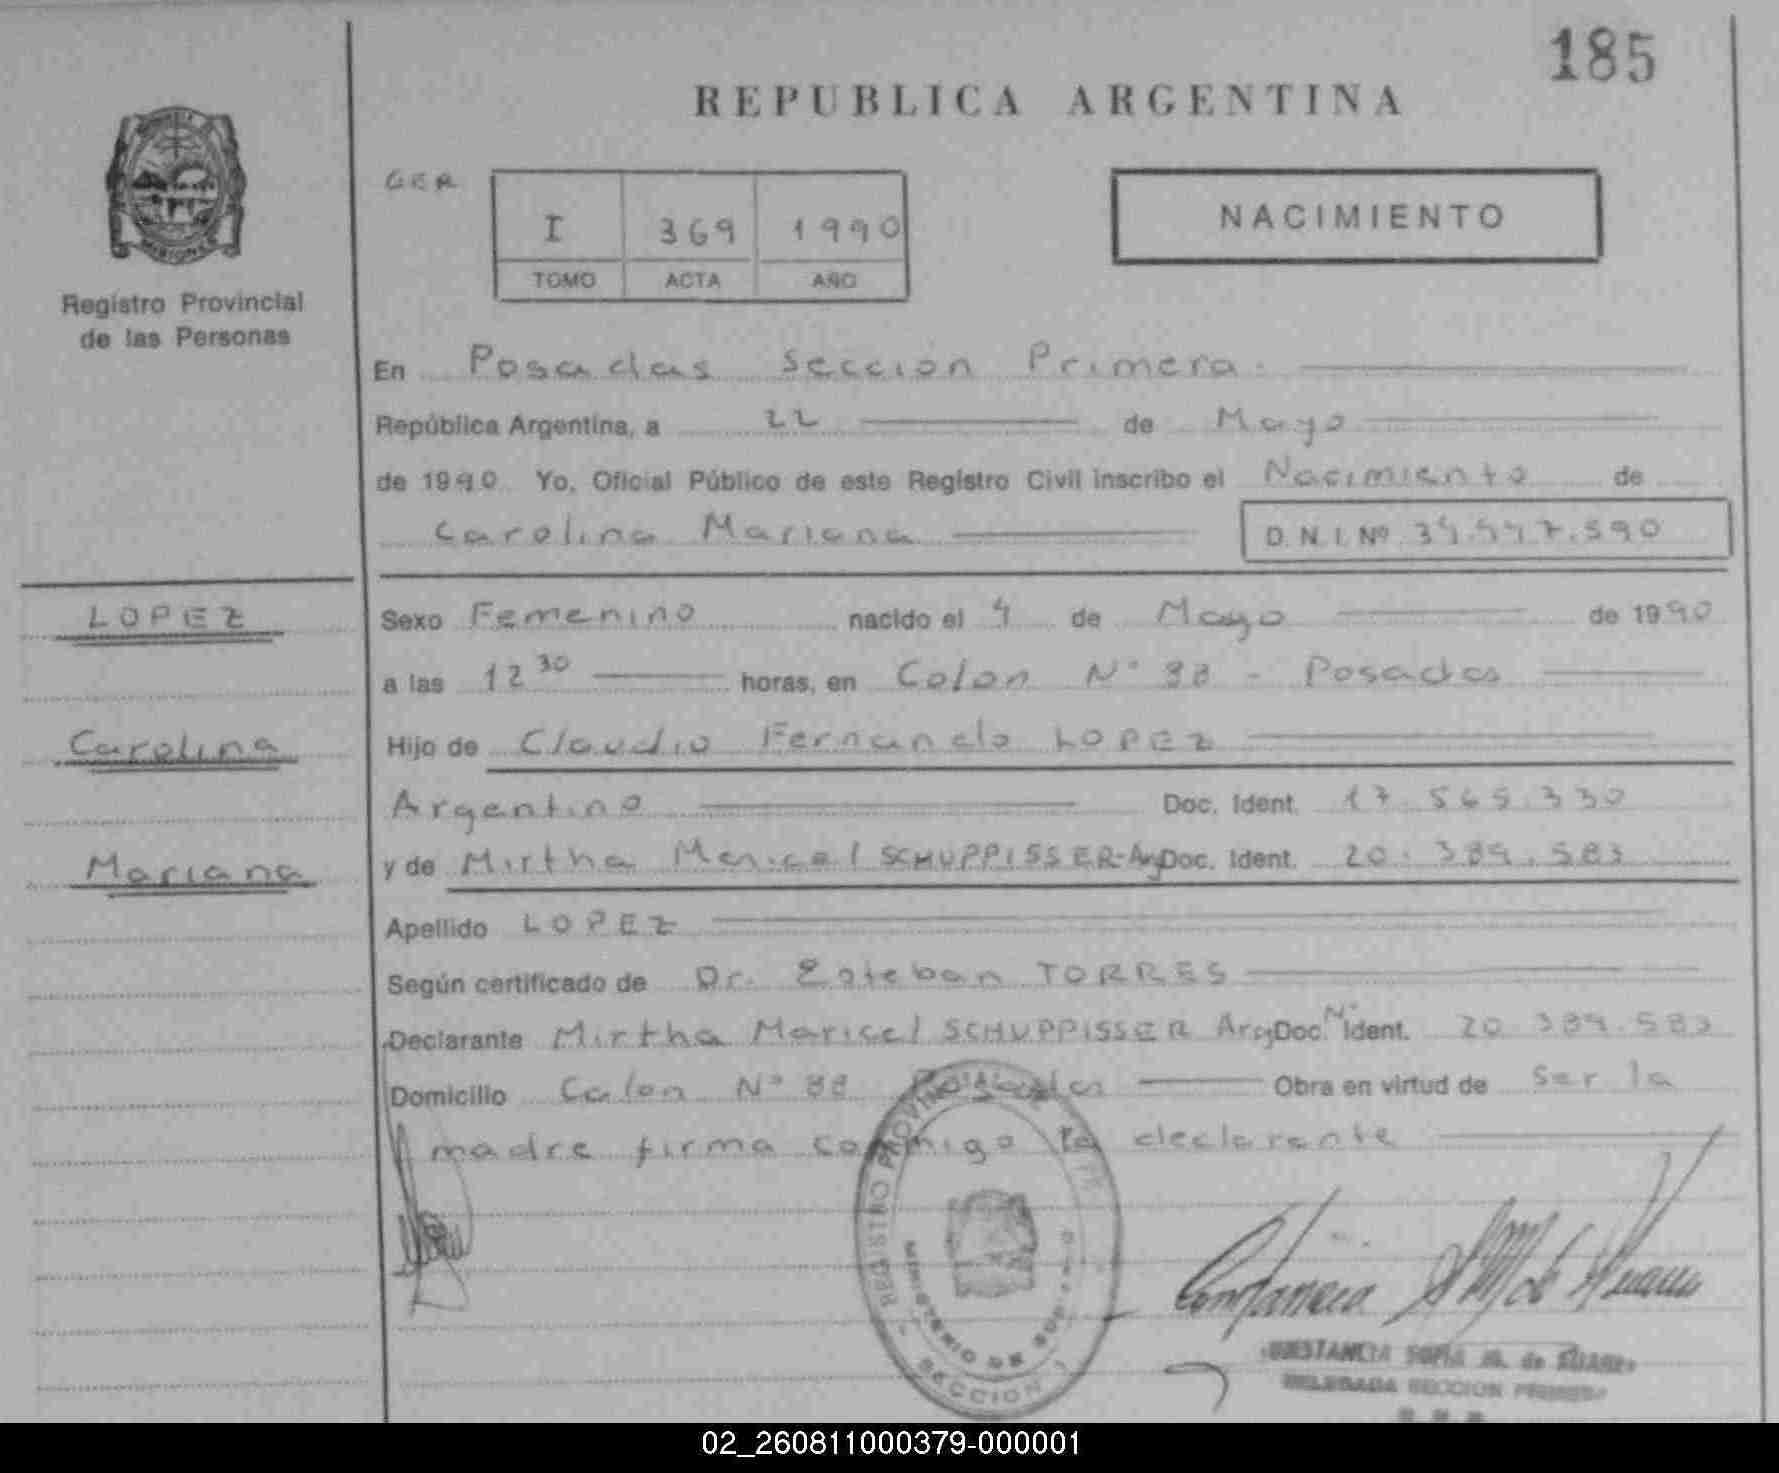 185
REPUBLICA ARGENTINA
GER
I 369 1990
TOMO ACTA AÑO
NACIMIENTO
MISIONES
Registro Provincial
de las Personas
En Posadas Sección Primera.
República Argentina, a 22 de Mayo
de 1990 Yo, Oficial Público de este Registro Civil inscribo el Nacimiento de
Carolina Mariana D. N. I. Nº
LOPEZ
Sexo Femenino nacido el 4 de Mayo de 1990
a las 12 30 horas, en Colon Nº 88 - Posadas
Carolina
Hijo de Claudio Fernando LOPEZ
Argentino Doc. Ident. 17.565.330
Mariana
y de Mirtha Maricel SCHUPPISSER-Arg Doc. Ident. 20.389.583
Apellido LOPEZ
Según certificado de Dr. Esteban TORRES
Declarante Mirtha Maricel SCHUPPISSER Arg Doc. Ident. 20.389.583
Domicilio Colon Nº 88 Posadas Obra en virtud de ser la
madre firma conmigo la declarante
REGISTRO PROVINCIAL DE
MINISTERIO DE
SECCION 1
SOFIA M. de SUAREZ
DELEGADA SECCION PRIMERA
02_260811000379-000001